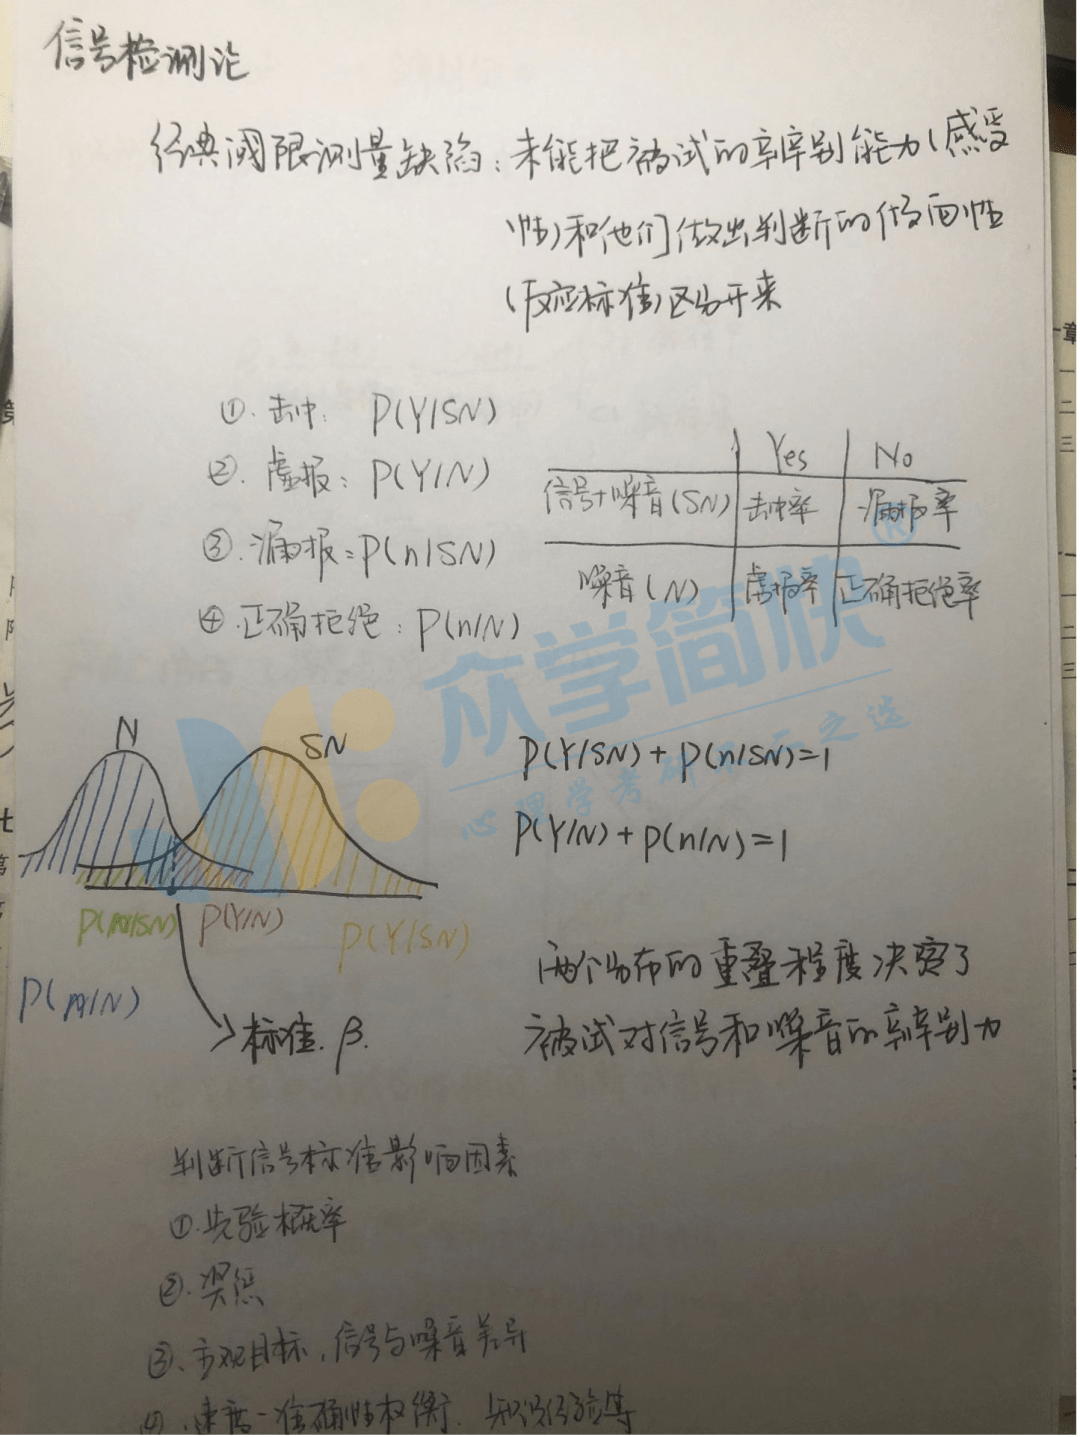 信号检测论
经典阈限测量缺陷：未能把被试的辨别能力(感受
性)和他们做出判断的倾向性
(反应标准)区分开来
①.击中： P(Y/SN)
②.虚报：P(Y/N)
③.漏报：P(n/SN)
④.正确拒绝：P(n/N)
Yes No
信号+噪音(SN) 击中率 漏报率
噪音(N) 虚报率 正确拒绝率
众学简快®
心理学考研 之选
N SN
P(Y/SN) + P(n/SN)=1
P(Y/N)+P(n/N)=1
P(n/SN) P(Y/N) P(Y/SN)
P(n/N)
标准.β.
两个分布的重叠程度决定了
被试对信号和噪音的辨别力
判断信号标准影响因素
①.先验概率
②.奖惩
③、主观目标、信号与噪音差异
④、速度-准确性权衡、知识经验等
章
一
二
三
一
二
三
第
七
第